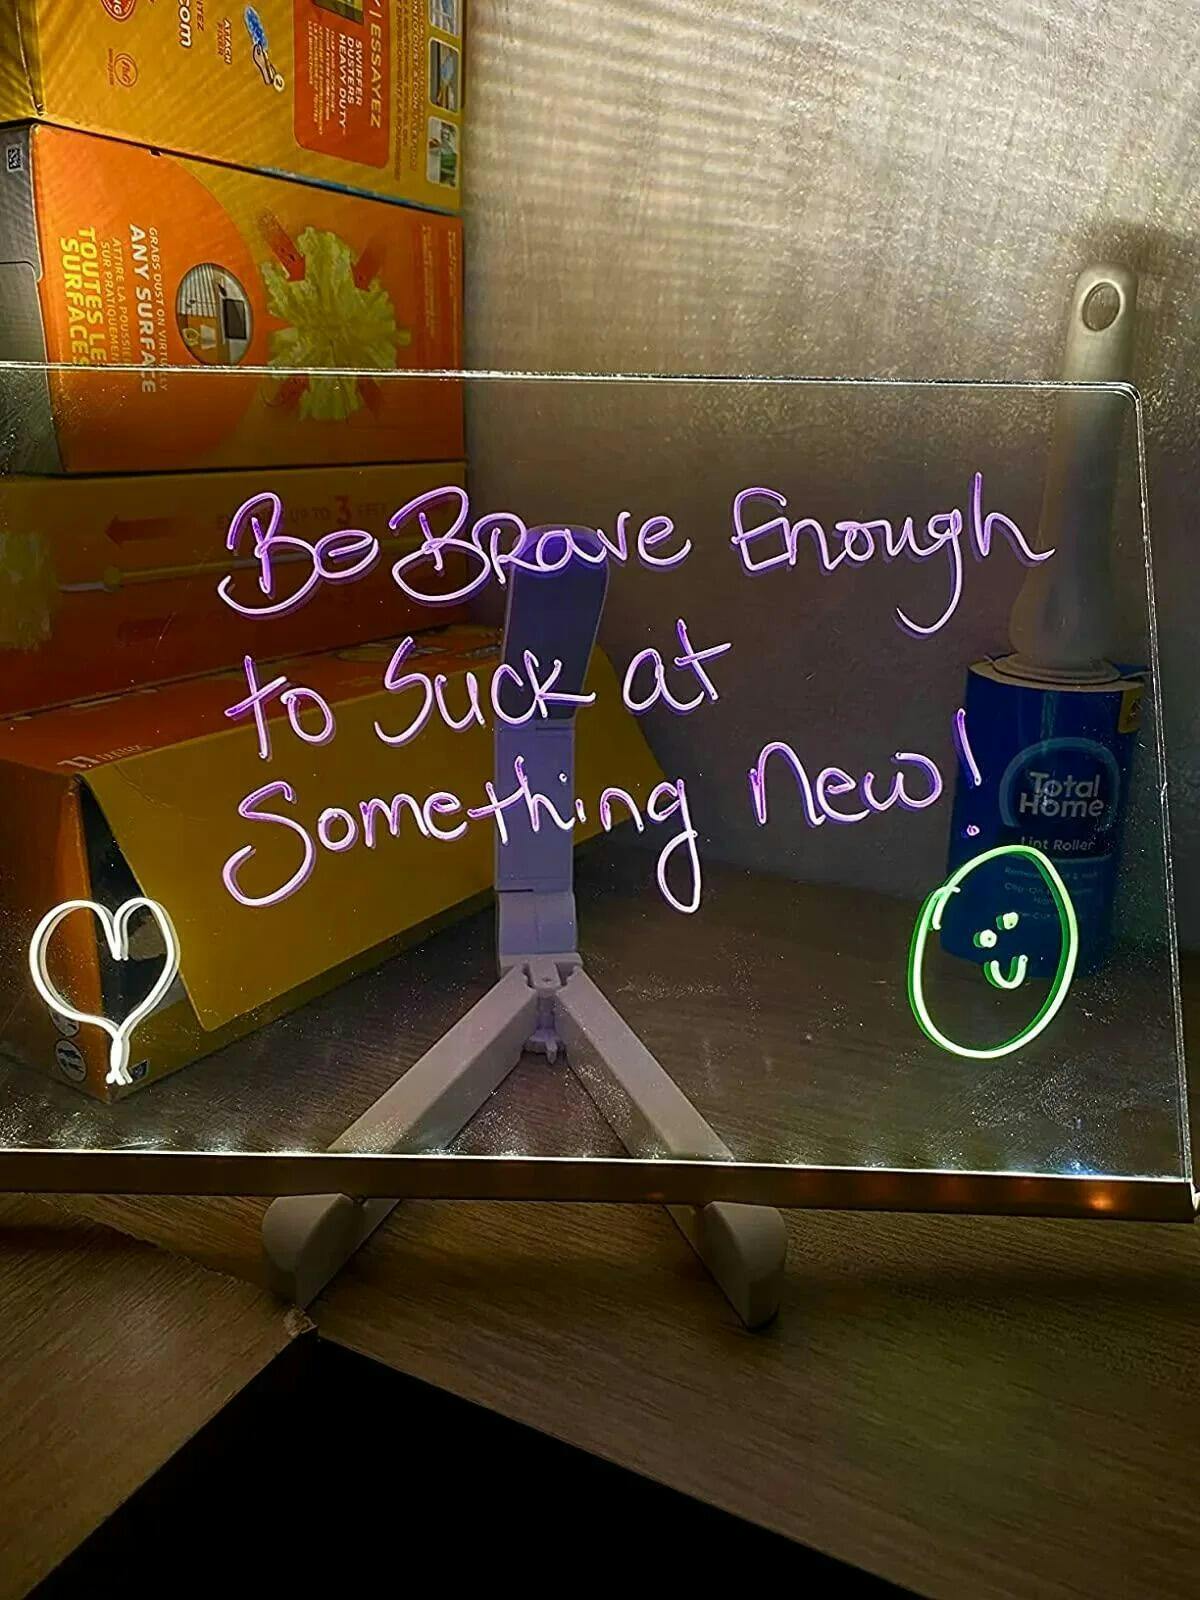 .com
ATTACH
| ESSAYEZ
SWIFFER
DUSTERS
HEAVY DUTY
GRABS DUST ON VIRTUALLY
ANY SURFACE
ATTIRE LA POUSSIÈRE
SUR PRATIQUEMENT
TOUTES LES
SURFACES
UP TO 3 FEET
Be Brave Enough
to Suck at
Something new!
Total
Home
Lint Roller